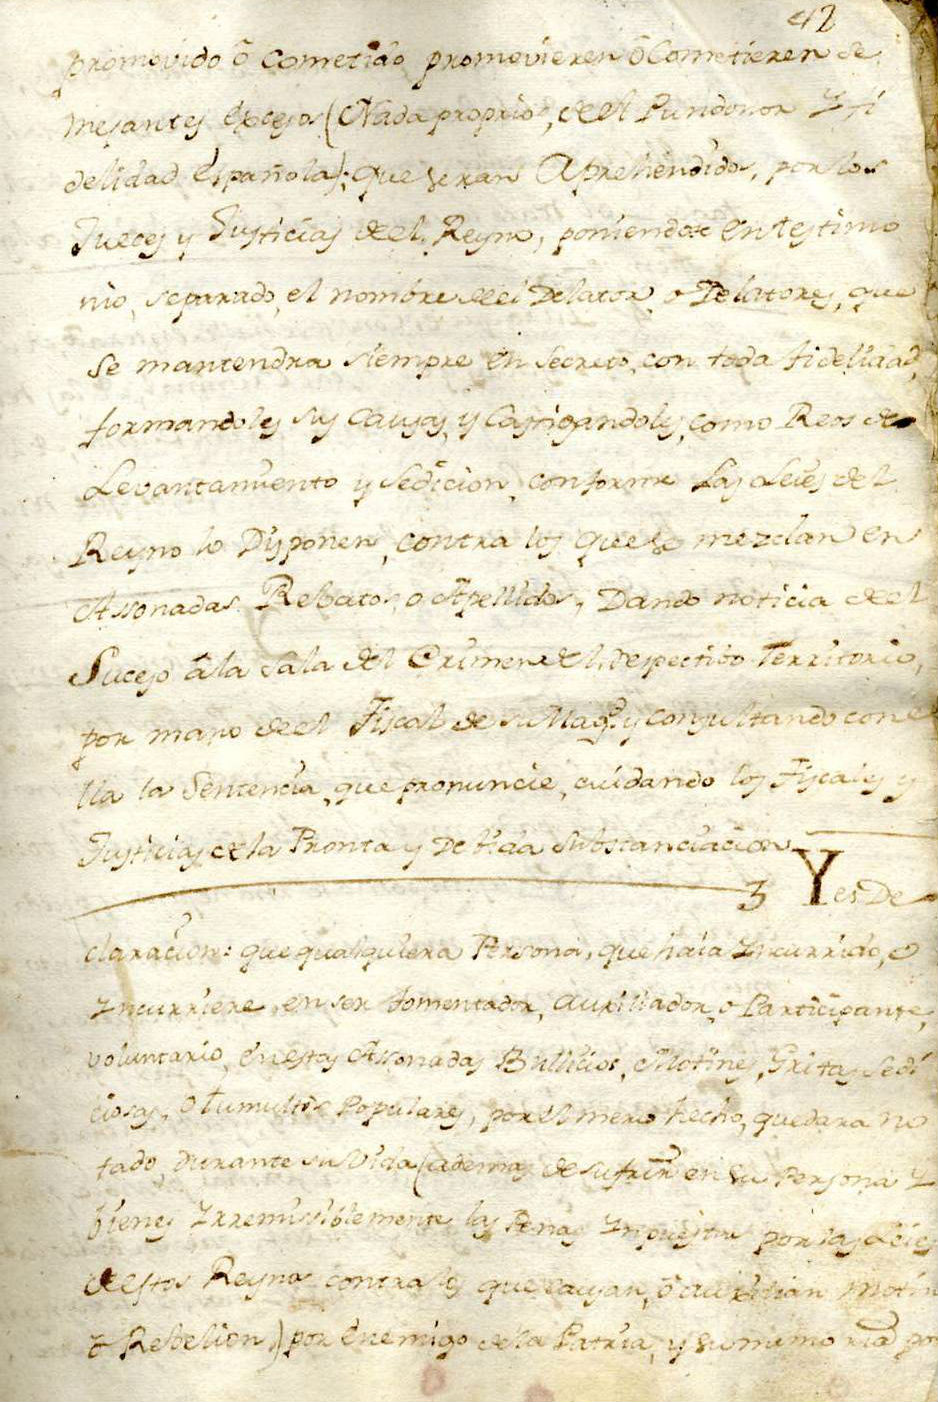 42
promovido ô Cometido promovieren ô Cometieren se
mejantes Excesos (Nada proprios, de el Pundonor Y fi
delidad Española); que seran Aprehendidos, por los
Jueces y Justicias de el Reyno, poniendose en testimo
nio, separado, el nombre de el Delator, o Delatores, que
se mantendra siempre en Secreto, con toda fidelidad,
formandoles sus Causas, y Castigandoles, como Reos de
Levantamiento y Sedicion, conforme las Leies del
Reyno lo Disponen, contra los que se mezclan en
Assonadas Rebatos, o Apellidos, Dando noticia de el
Suceso â la Sala del Crimen de el respectibo Territorio,
por mano de el Fiscal de su Magd. y consultando con e
lla la Sentencia, que pronuncie, cuidando los Fiscales y
Justicias de la Pronta y Debida Substanciacion
3 Y es De
claracion: que qualquiera Persona, que haia Yncurrido, o
Yncurriere, en ser fomentador, Auxiliador, o Participante,
voluntario, en estas Assonadas Bullicios, Motines, Gritas Sedi
ciosas, o tumultos Populares, por el mero hecho, quedara no
tado, Durante su Vida (ademas de sufrir en su Persona Y
bienes Yrremisiblemente las Penas Ynpuestas por las Leies
de estos Reynos contra los que causan, ô auxilian Motin
o Rebelion,) por Enemigo de la Patria, y su memoria po